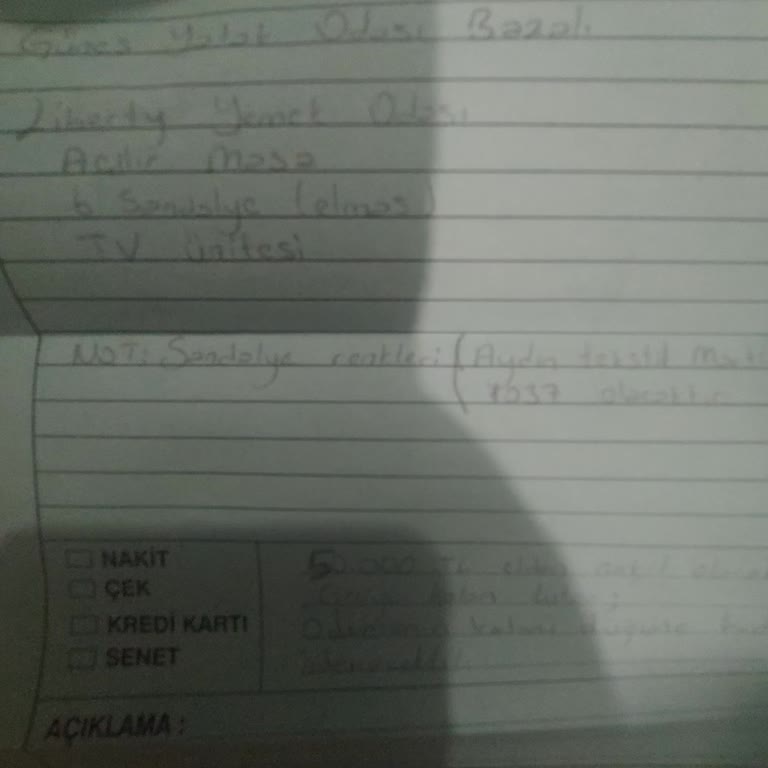 Güneş Yatak Odası Bazalı
Liberty Yemek Odası
Açılır Masa
6 Sandalye (elmas)
TV ünitesi
NOT: Sandalye renkleri (Aydın tekstil
7537 olacaktır
NAKİT
ÇEK
KREDİ KARTI
SENET
50.000 TL elden
kalan
kalanı düğüne
AÇIKLAMA :